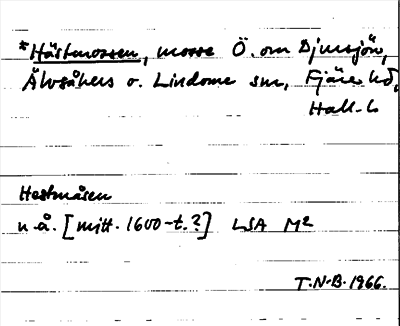 *Hästmossen, mosse Ö. om Djursjön,
Älvsåkers o. Lindome snr, Fjäre hd,
Hall. l.
Hestmåsen
u.å. [mitt. 1600-t.?] LSA M2
T.N-B. 1966.